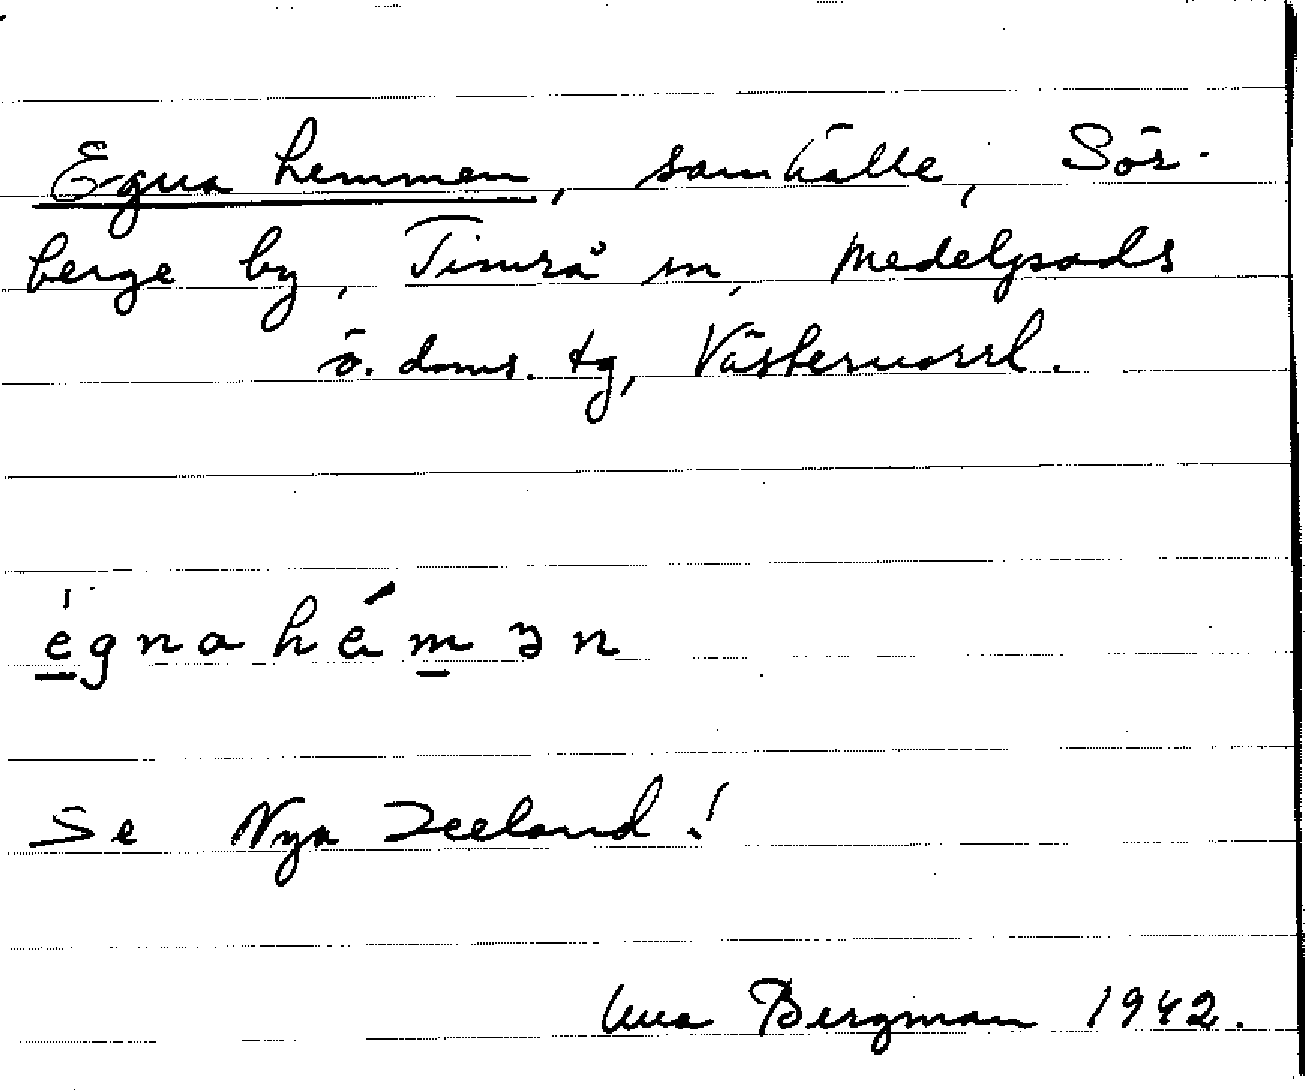 Egna hemmen, samhälle, Sör-
berge by, Timrå sn, Medelpads
ö. doms. tg, Västernorrl.
égnahémən
Se Nya Zeeland!
Bergman 1942.